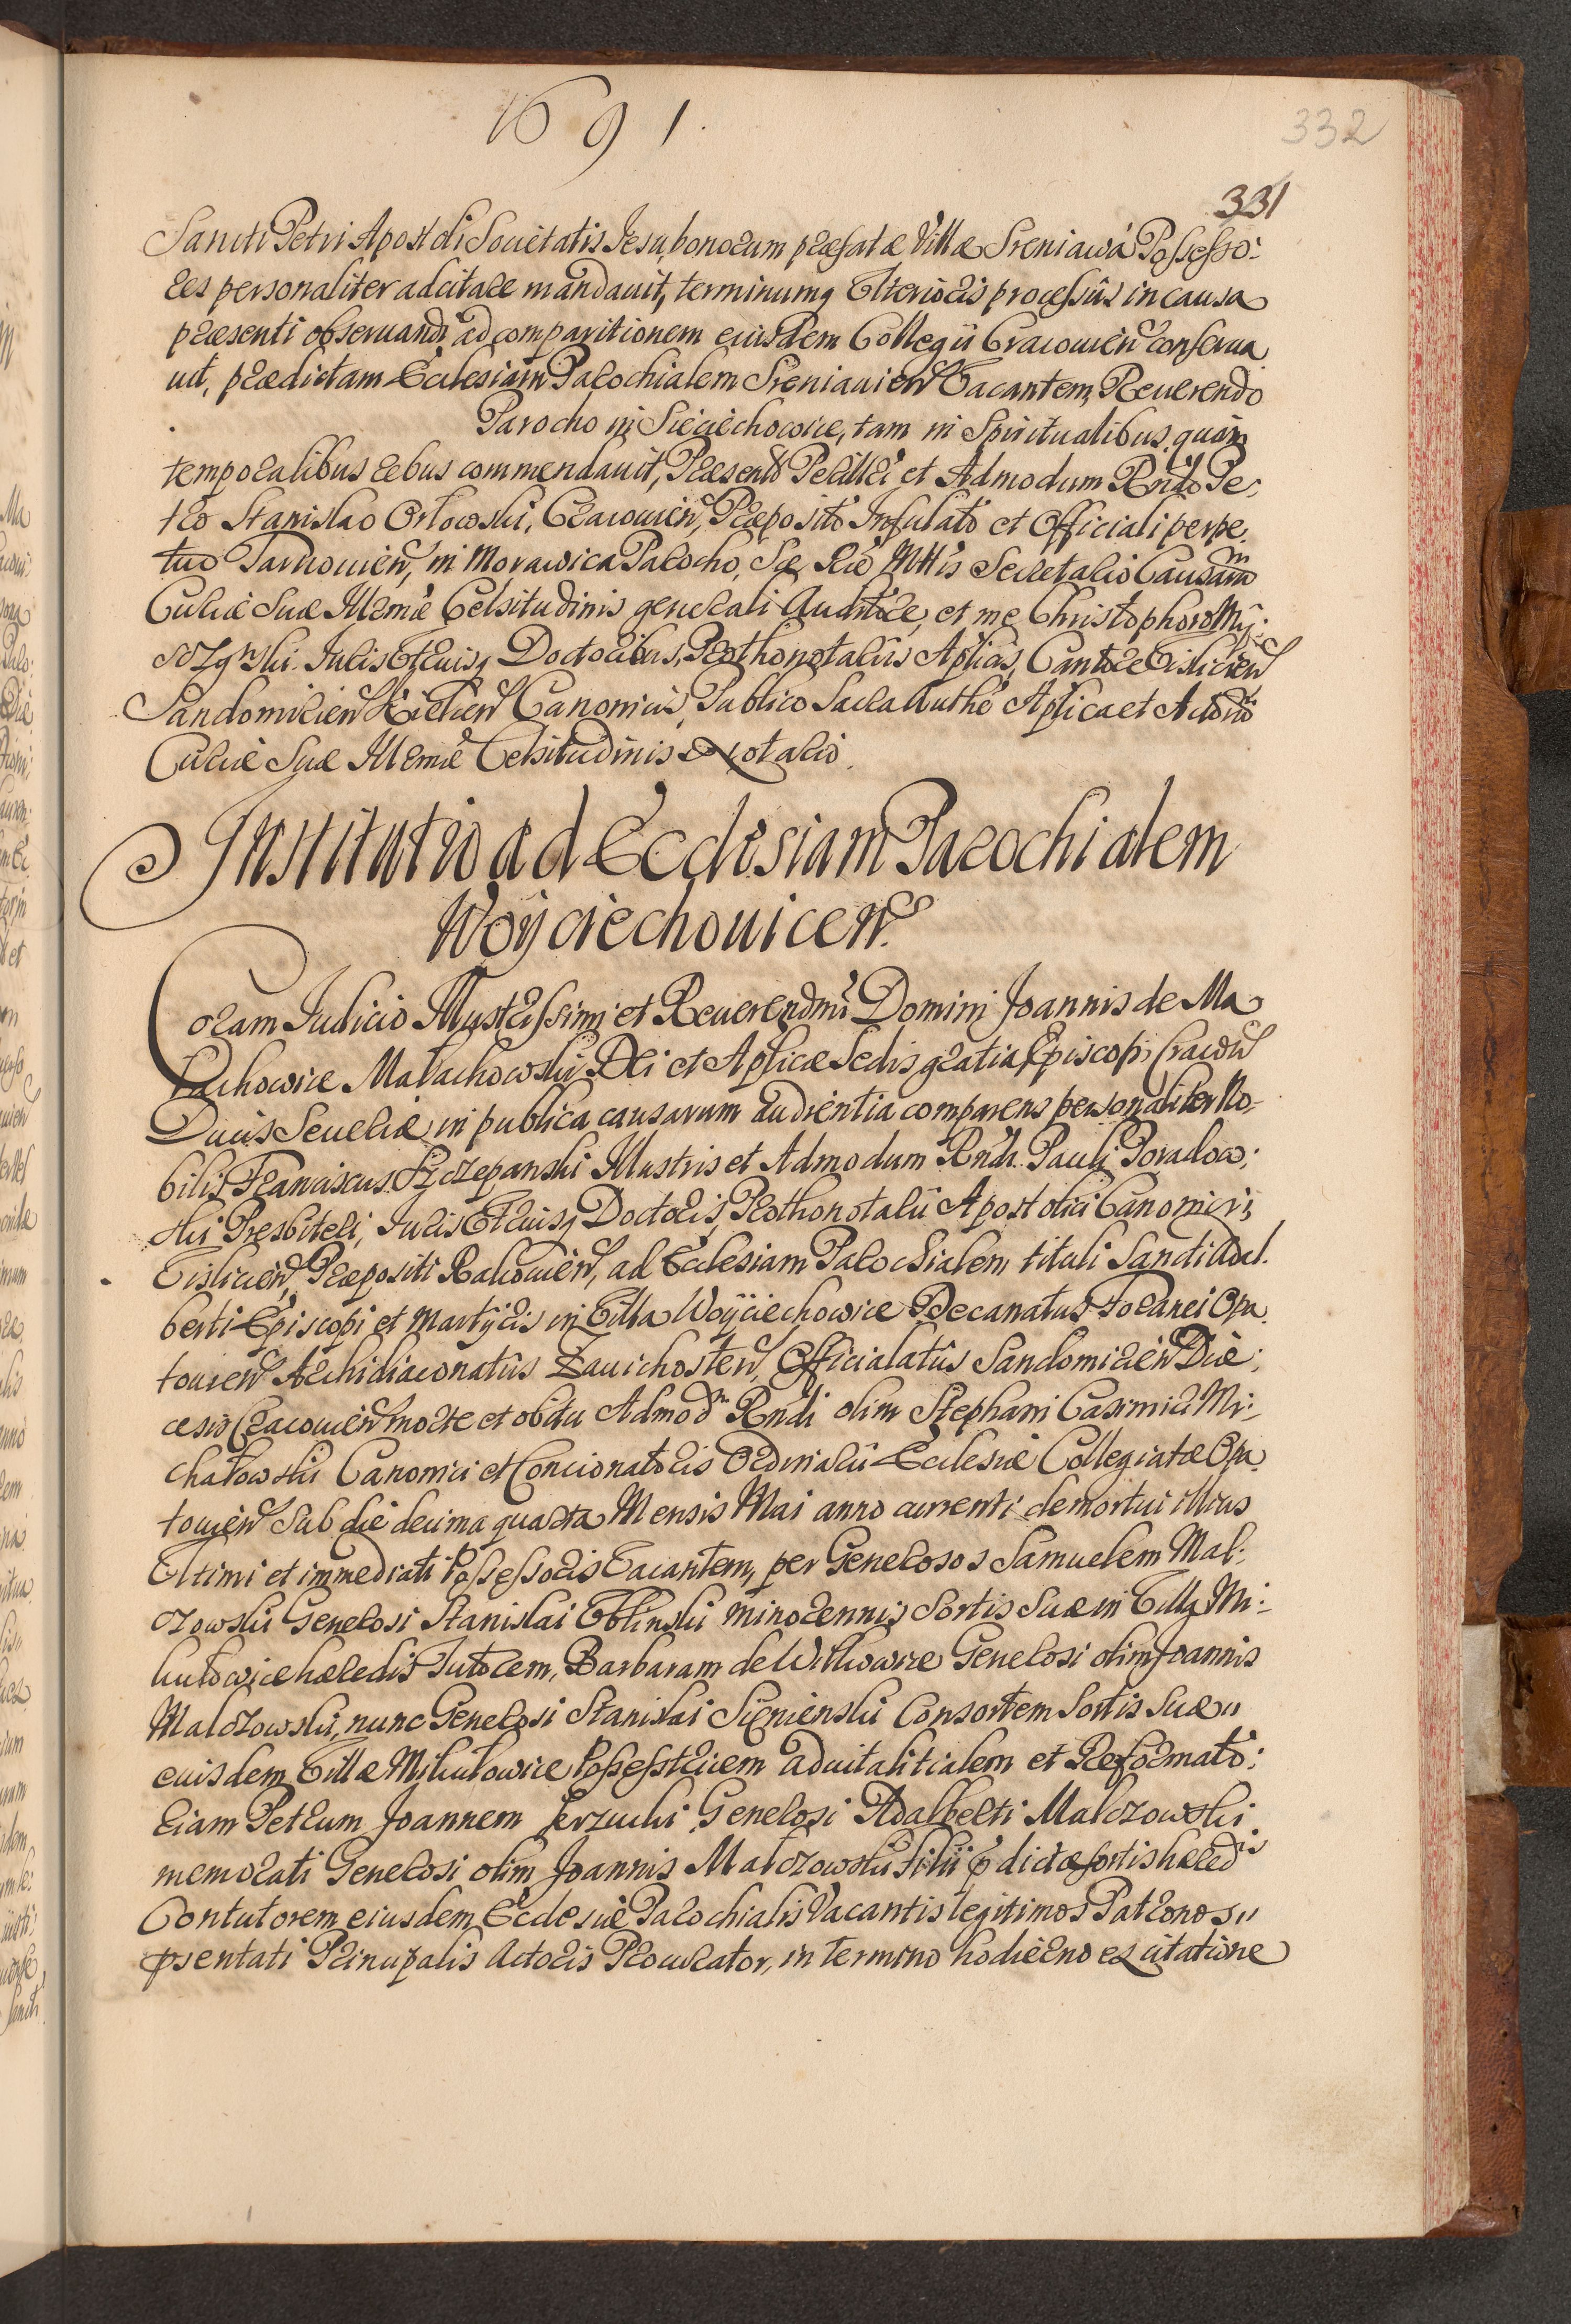 1691.
332
331
Sancti Petri Apostoli Societatis Jesu, bonorum præfatæ Villæ Sreniawa Possesso:
res personaliter adcitare mandavit, terminumq Ulterioris processûs in causa
præsenti observandi ad comparitionem eiusdem Collegii Cracovien conserva
vit, prædictam Ecclesiam Parochialem Sreniavien Vacantem, Reverendo
Parocho in Sieciechowice, tam in Spiritualibus quàm
temporalibus rebus commendavit, Præsent Perillri et Admodum Rndo Pe:
tro Stanislao Orłowski, Cracovien, Præposito Infulato et Officiali perpe:
tuo Tarnovien, in Morawica Parocho, Sæ Ræ Mttis Secretario Causarum
Curiæ Suæ Illrmæ Celsitudinis generali Auditore, et me Christophoro My:
Juris Utriusq Doctoribus, Prothonotariis Aplicis, Cantore Vislicien
Sandomirien Kielcen Canonicis, Publico Sacra Authe Aplica et Actorum
Curiæ Suæ Illrmæ Celsitudinis Notario.
Institutio ad Ecclesiam Parochialem
Woyciechovicen.
Coram Iudicio Illustrissimi et Reverendmi Domini Joannis de Ma
łachowice Małachowski Dei et Aplicæ Sedis gratia Episcopi Cracovien
Ducis Severiæ in publica causarum audientia comparens personaliter No-
bilis Franciscus Szczepanski Illustris et Admodum Rndi Pauli Poradow:
ski Presbiteri, Juris Utriusq Doctoris, Prothonotarii Apostolici Canonici
Vislicien, Præpositi Rakovien, ad Ecclesiam Parochialem tituli Sancti Adal.
berti Episcopi et Martyris in Villa Woyciechowice Decanatus Foranei Opa.
tovien Archidiaconatûs Zavichosten, Officialatûs Sandomirien Diæ:
cesis Cracovien morte et obitu Admodm Rndi olim Stephani Casimiri Mi:
chałowski Canonici et Concionatoris Ordinarii Ecclesiæ Collegiatæ Opa
tovien Sub die decima quarta Mensis Mai anno currenti demortui illius
Ultimi et immediati Possessoris Vacantem, per Generosos Samuelem Mal:
czowski Generosi Stanislai minorennis Sortis Suæ in Villa Mi:
kułowice hæredis Tutorem, Barbaram de Witkowice Generosi olim Joannis
Malczowski, nunc Generosi Stanislai Sienienski Consortem Sortis Suæ
eiusdem Villæ Mikułowice Possestricem advitalitialem et Reformato:
riam Petrum Joannem Jerzucki Generosi Adalberti Malczowski
memorati Generosi olim Joannis Malczowski Filii pdictæ sortis hæredis
Contutorem eiusdem Ecclesiæ Parochialis Vacantis legitimos Patronos
psentati Principalis Actoris Procurator, in termino hodierno ex citatione